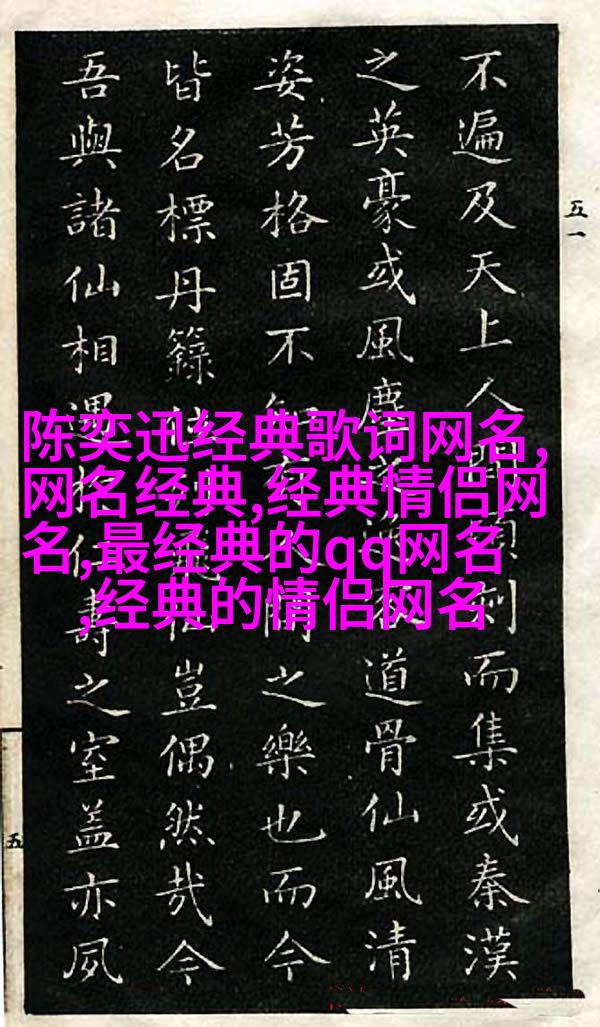 不遍及天上人間頃刻而集或秦漢
之英豪或風塵道骨仙風清
姿芳格固不間之樂也而今
皆名標丹籙仙豈偶然哉今
吾與諸仙相遇於仁壽之室蓋亦夙
五一
五
陈奕迅经典歌词网名,
网名经典,经典情侣网
名,最经典的qq网名
,经典的情侣网名